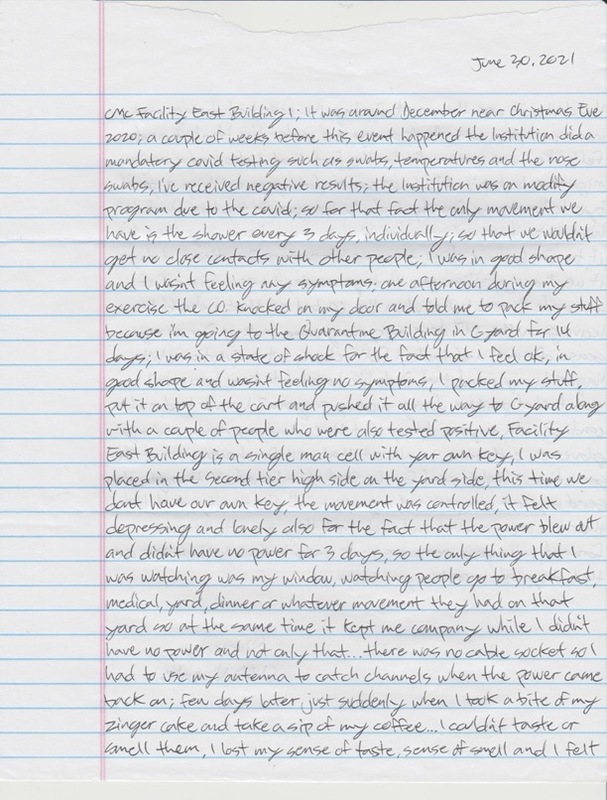 June 30, 2021
CMC Facility East Building 1; it was around December near Christmas Eve
2020; a couple of weeks before this event happened the Institution did a
mandatory covid testing such as swabs, temperatures and the nose
swabs, I've received negative results; the Institution was on modify
program due to the covid; so for that fact the only movement we
have is the shower every 3 days, individually; so that we wouldn't
get no close contacts with other people; I was in good shape
and I wasn't feeling any symptoms; one afternoon during my
exercise the C.O. knocked on my door and told me to pack my stuff
because i'm going to the Quarantine Building in C-yard for 14
days; I was in a state of shock for the fact that I feel ok, in
good shape and wasn't feeling no symptoms, I packed my stuff,
put it on top of the cart and pushed it all the way to C-yard along
with a couple of people who were also tested positive, Facility
East Building is a single man cell with your own key, I was
placed in the second tier high side on the yard side, this time we
dont have our own key, the movement was controlled, it felt
depressing and lonely also for the fact that the power blew out
and didn't have no power for 3 days, so the only thing that I
was watching was my window, watching people go to breakfast,
medical, yard, dinner or whatever movement they had on that
yard so at the same time it kept me company while I didn't
have no power and not only that... there was no cable socket so I
had to use my antenna to catch channels when the power came
back on; few days later just suddenly when I took a bite of my
zinger cake and take a sip of my coffee... I couldn't taste or
smell them, I lost my sense of taste, sense of smell and I felt